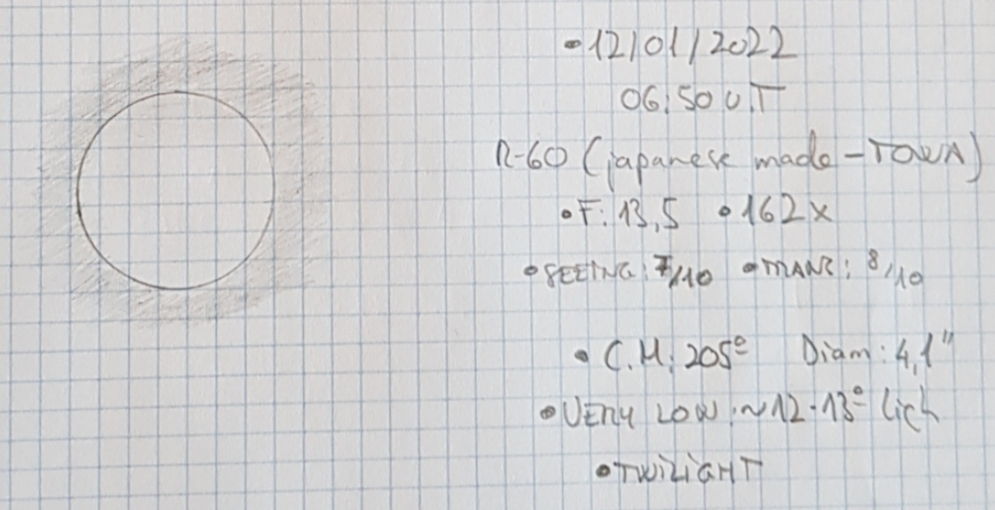 •12/01/2022
06:50 U.T
R-60 (japanese made-TOWA)
•F: 13,5 •162x
•SEEING: 7/10 •MANR: 8/10
• C.M: 205º Diam: 4,1"
•VERY LOW: ~12-13º
•TWILIGHT